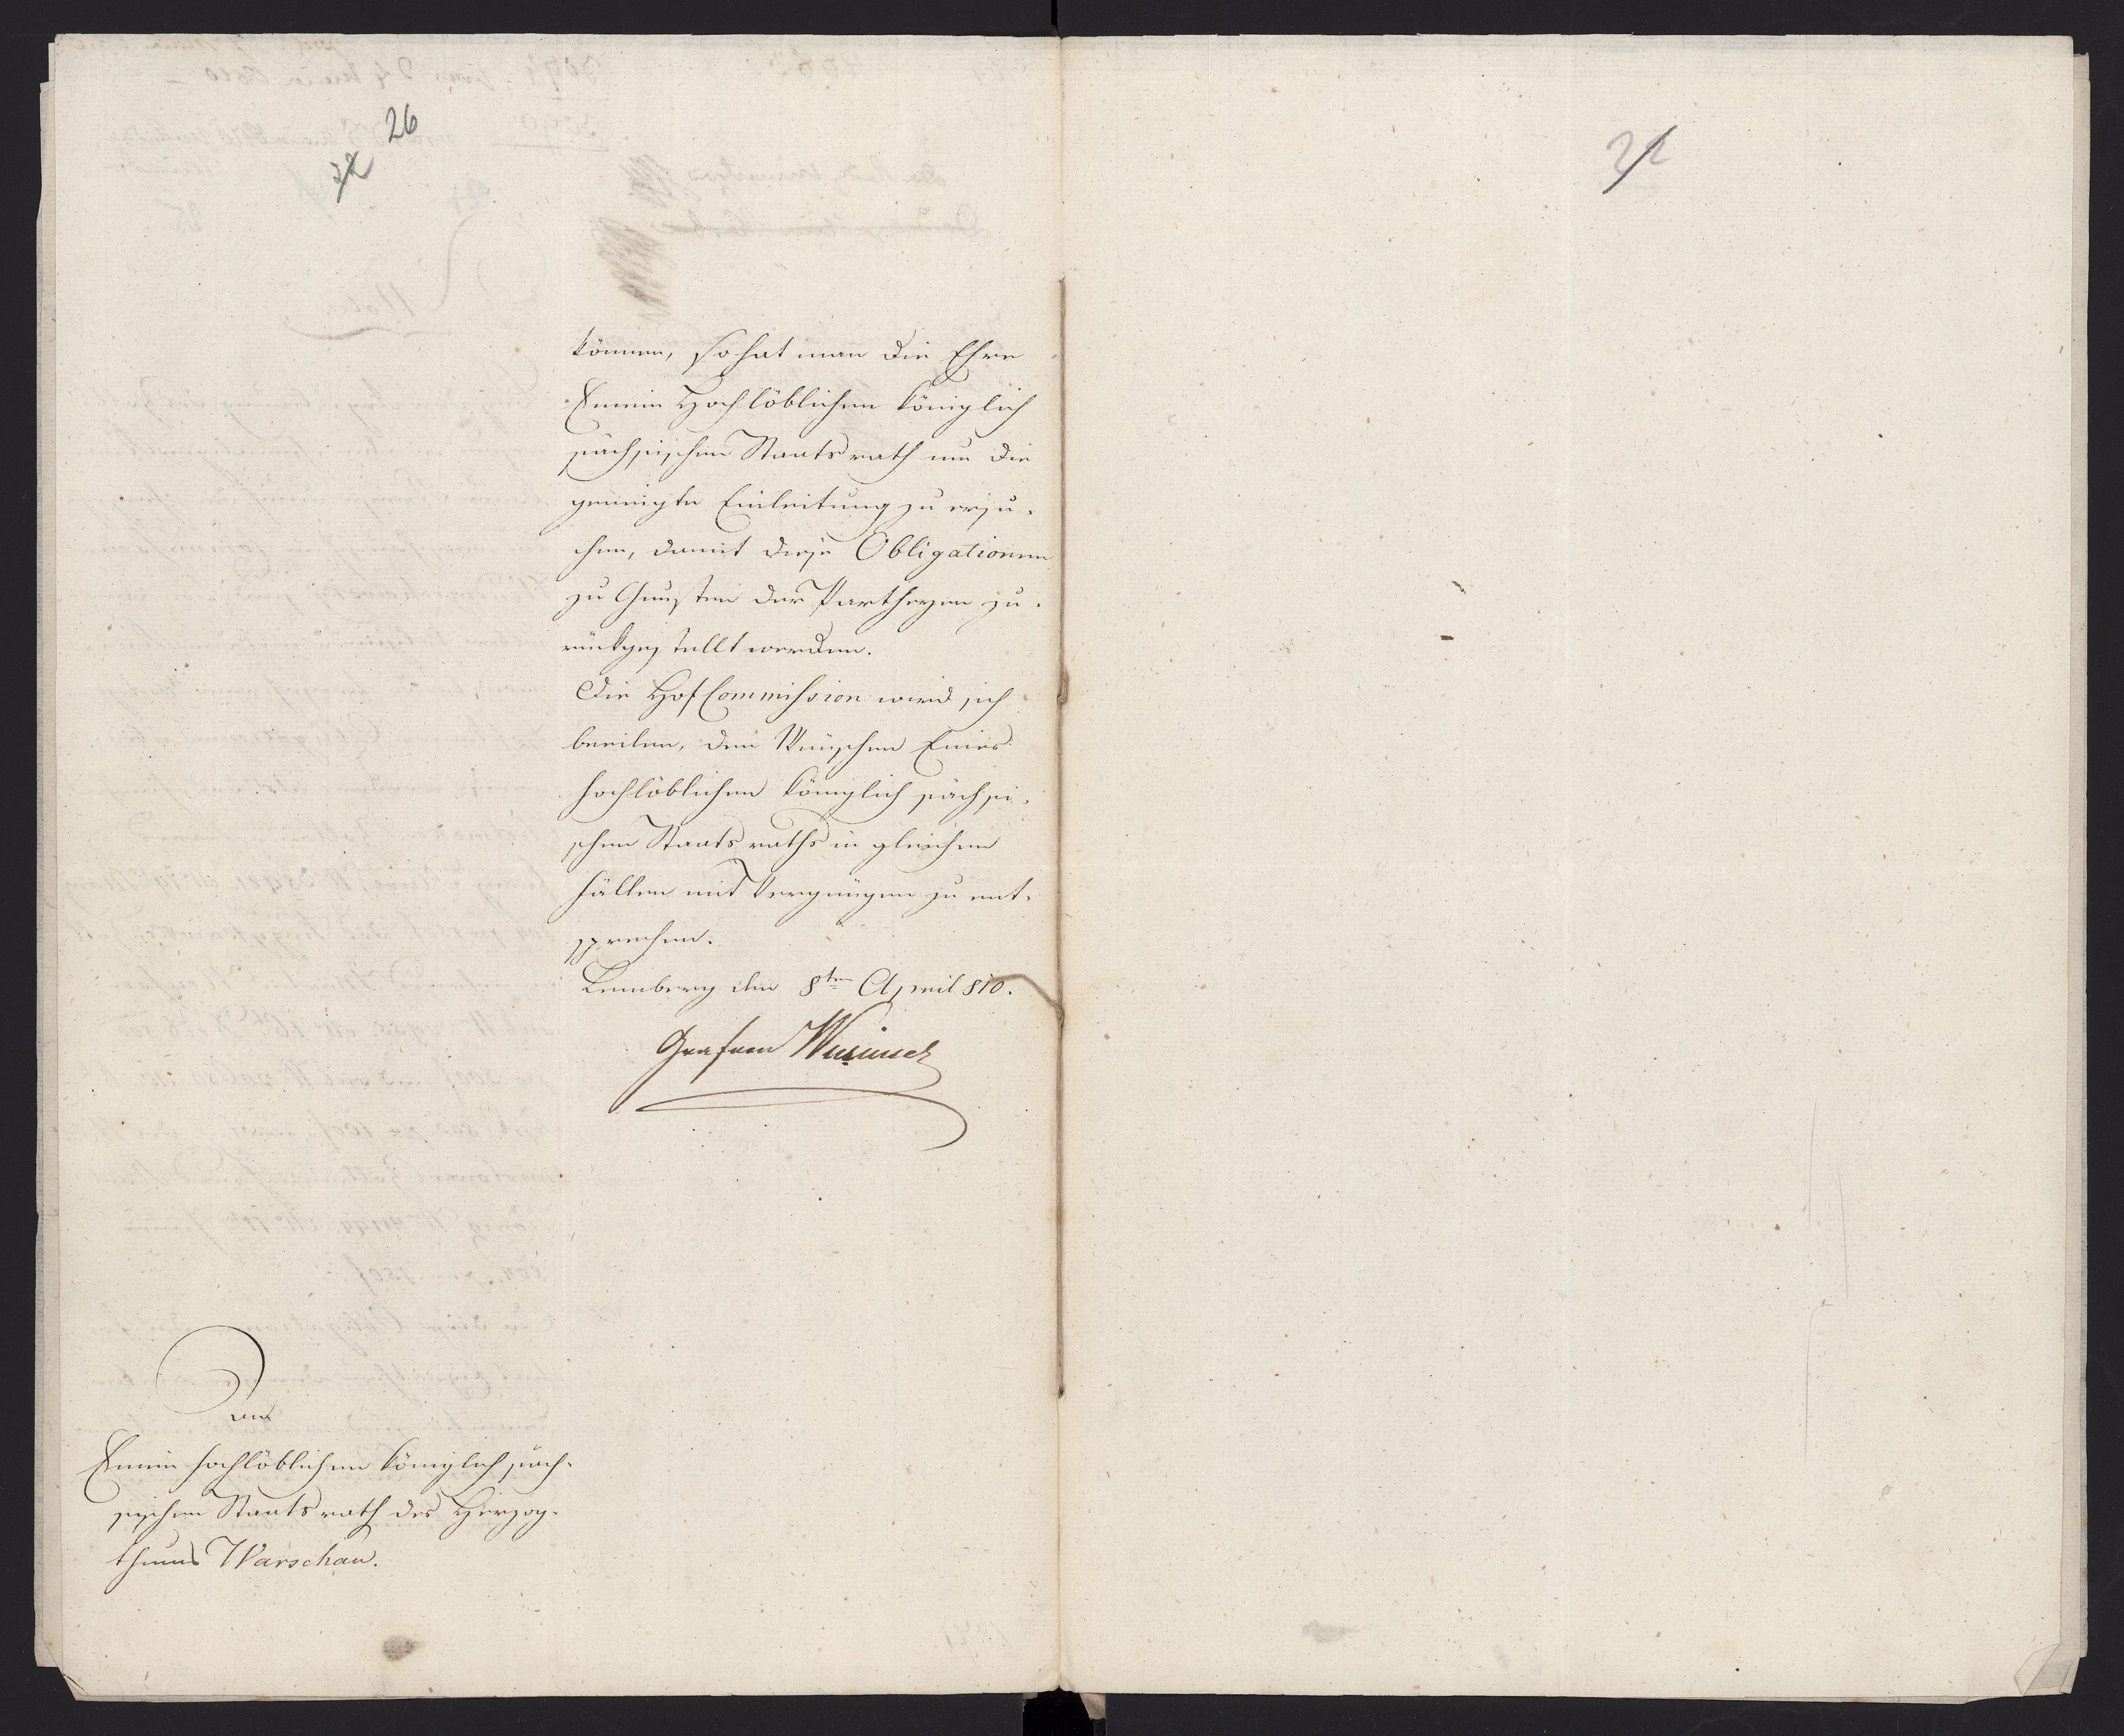 26
32
können, so hat man die Ehre
Einen Hochlöblichen königlich
sächsischen Staatsrath um die
geneigte Einleitung zu ersu-
chen, damit diese Obligationen
zu Gunsten der Partheyen zu-
rückgestellt werden.
Die HofCommission wird sich
beeilen, den Wünschen Eines
hochlöblichen königlich sächsi-
schen Staatsraths in gleichen
Fällen mit Vergnügen zu ent-
sprechen.
Lemberg den 8ten April 810.
An
Einen hochlöblichen königlich säch-
sischen Staatsrath des Herzog-
thums Warschau.
32